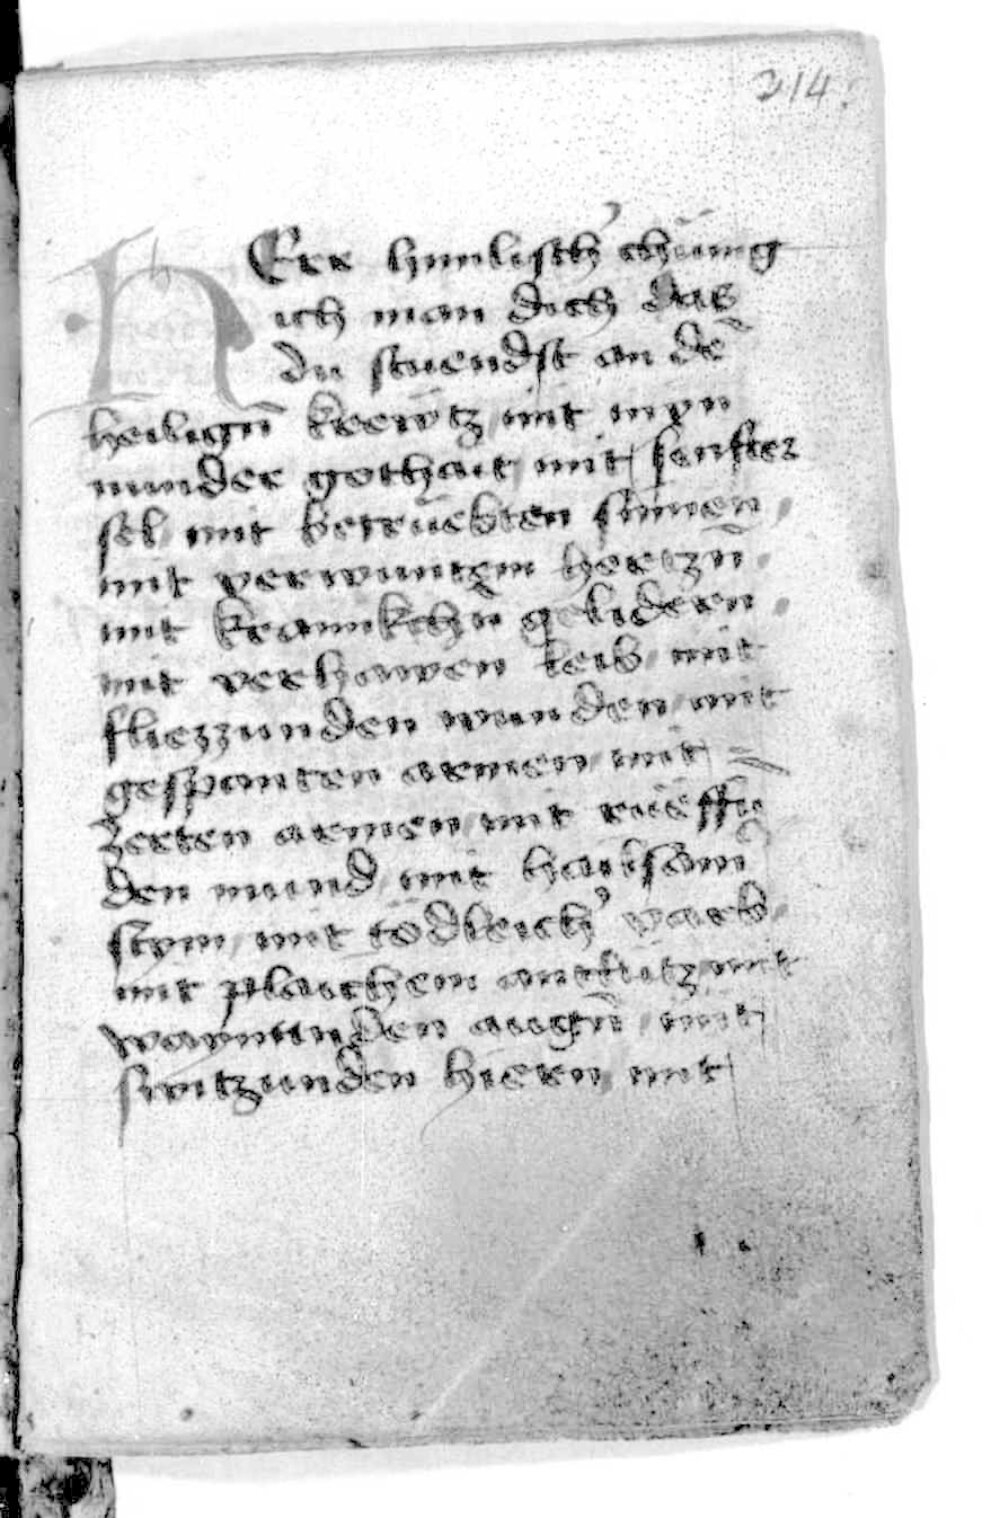 214.
HErr himlisch' chünig
ich man dich das
du stuendst an dē
heiligñ kreẅtz mit myn
nunder gothait mit senfter
sel mit betrüebten sinnen
mit verwuntem hertzñ
mit krannkchn gelideren
mit verhawen leib mit
fliezzunden wunden mit
gespanten armen mit =
zerten armen mit rüeffn
den mund mit haissam̄
stym mit tödleich' varb
mit plaichem antlütz mit
waynunden augñ mit
switzunden hieren mit